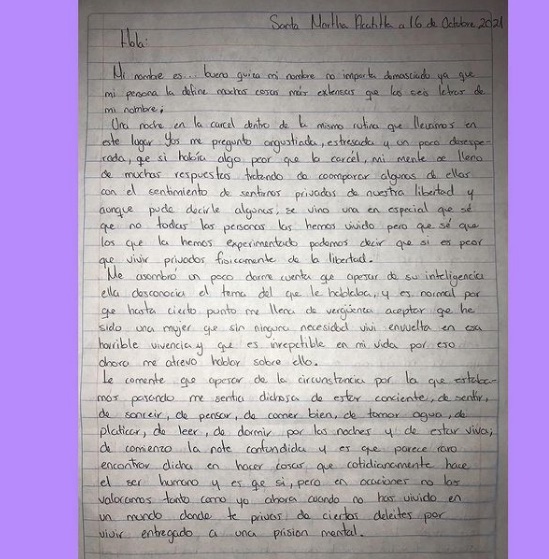 Santa Martha Acatitla a 16 de Octubre 2021
Hola:
Mi nombre es... bueno quiza mi nombre no importa demasiado ya que
mi persona la define muchas cosas mair extensas que las seis letras de
mi nombre;
Una noche en la carcel dentro de la misma rutina que llevamos en
este lugar Yus me pregunto angustiada, estresada y un poco desespe-
rada, que si habia algo peor que la carcél, mi mente se lleno
de muchas respuestas tratando de coomparar algunas de ellas
con el sentimiento de sentirnos privados de nuestra libertad y
aunque pude decirle algunas, se vino una en especial que sé
que no todas las personas las hemos vivido pero que sé que
los que la hemos experimentado podemos decir que si es peor
que vivir privados fisicamente de la libertad.
Me asombró un poco darme cuenta que apesar de su inteligencia
ella desconocia el tema del que le hablaba, y es normal por
que hasta cierto punto me llena de vergüenza aceptar que he
sido una mujer que sin ninguna necesidad vivi envuelta en esa
horrible vivencia y que es irrepetible en mi vida por eso
ahora me atrevo hablar sobre ello.
Le comente que apesar de la circunstancia por la que estaba-
mos pasando me sentia dichosa de estar conciente, de sentir,
de sonreir, de pensar, de comer bien, de tomar agua, de
platicar, de leer, de dormir por las noches y de estar viva;
de comienzo la note confundida y es que parece raro
encontrar dicha en hacer cosas que cotidianamente hace
el ser humano y es que si, pero en ocaciones no las
valoramos tanto como yo ahora cuando no has vivido en
un mundo donde te privas de ciertos deleites por
vivir entregado a una prision mental.